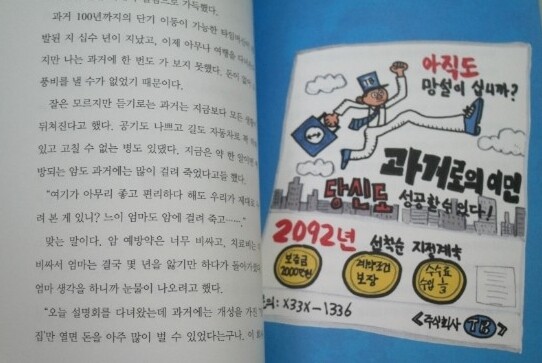 과거 100년까지의 단기 이동이 가능한
발된 지 십수 년이 지났고, 이제 아무나 여행을
지만 나는 과거에 한 번도 가 보지 못했다. 돈이
풍비를 낼 수가 없었기 때문이다.
잘은 모르지만 듣기로는 과거는 지금보다 모든
뒤처진다고 했다. 공기도 나쁘고 길도 자동차로
있고 고칠 수 없는 병도 있댔다. 지금은 약 한 알이면
방되는 암도 과거에는 많이 걸려 죽었다고들 했다.
"여기가 아무리 좋고 편리하다 해도 우리가
려 본 게 있니? 느이 엄마도 암에 걸려 죽고……."
맞는 말이다. 암 예방약은 너무 비싸고, 치료비는
비싸서 엄마는 결국 몇 년을 앓기만 하다가
엄마 생각을 하니까 눈물이 나오려고 했다.
"오늘 설명회를 다녀왔는데 과거에는 개상을 가진
집'만 열면 돈을 아주 많이 벌 수 있었다는구나.
아직도
망설이십니까?
TB
과거로의 이면
당신도 성공할 수 있다!
2092년 선착순 지점계약
보증금 2000만원
계약조건 보장
수수료 수입
X33X-1336
<주식회사 TB>